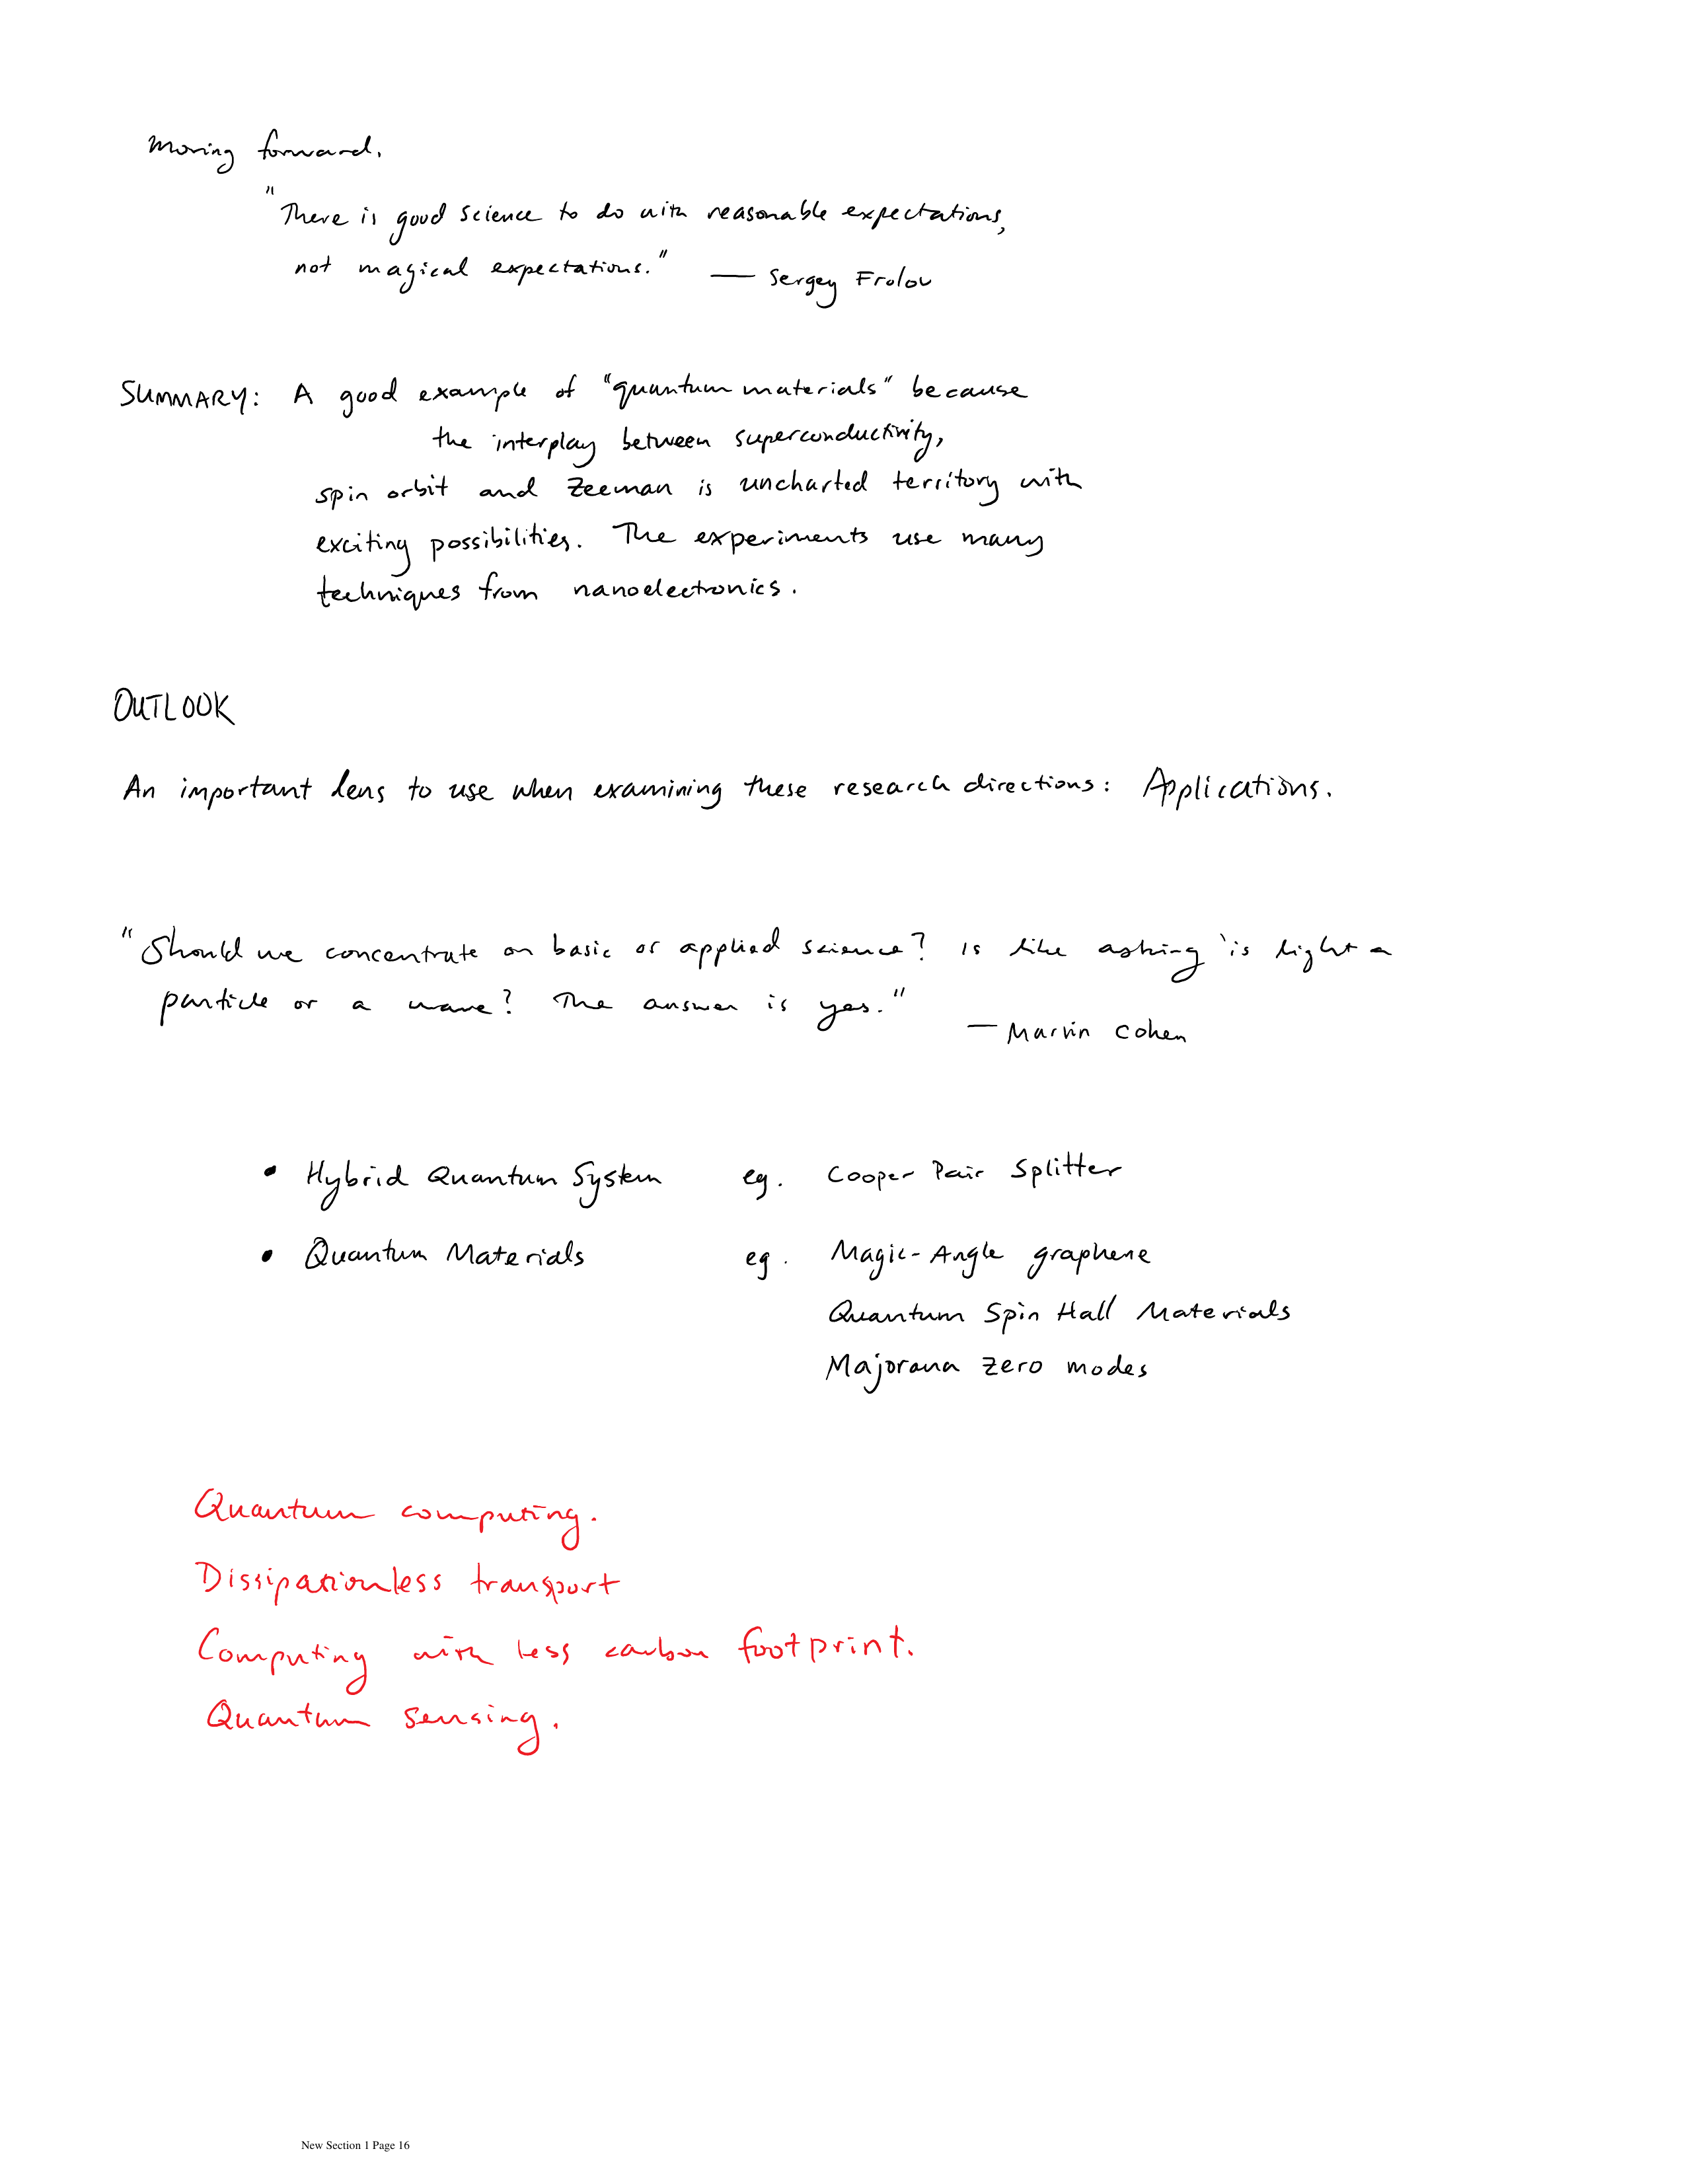 Moving forward.
"There is good science to do with reasonable expectations,
not magical expectations." — Sergey Frolov
SUMMARY: A good example of "quantum materials" because
the interplay between superconductivity,
spin orbit and Zeeman is uncharted territory with
exciting possibilities. The experiments use many
techniques from nanoelectronics.
OUTLOOK
An important lens to use when examining these research directions: Applications.
"Should we concentrate on basic or applied science? is like asking 'is light a
particle or a wave? The answer is yes."
— Marvin Cohen
• Hybrid Quantum System eg. Cooper Pair Splitter
• Quantum Materials eg. Magic-Angle graphene
Quantum Spin Hall Materials
Majorana zero modes
Quantum computing.
Dissipationless transport
Computing with less carbon footprint.
Quantum sensing.
New Section 1 Page 16